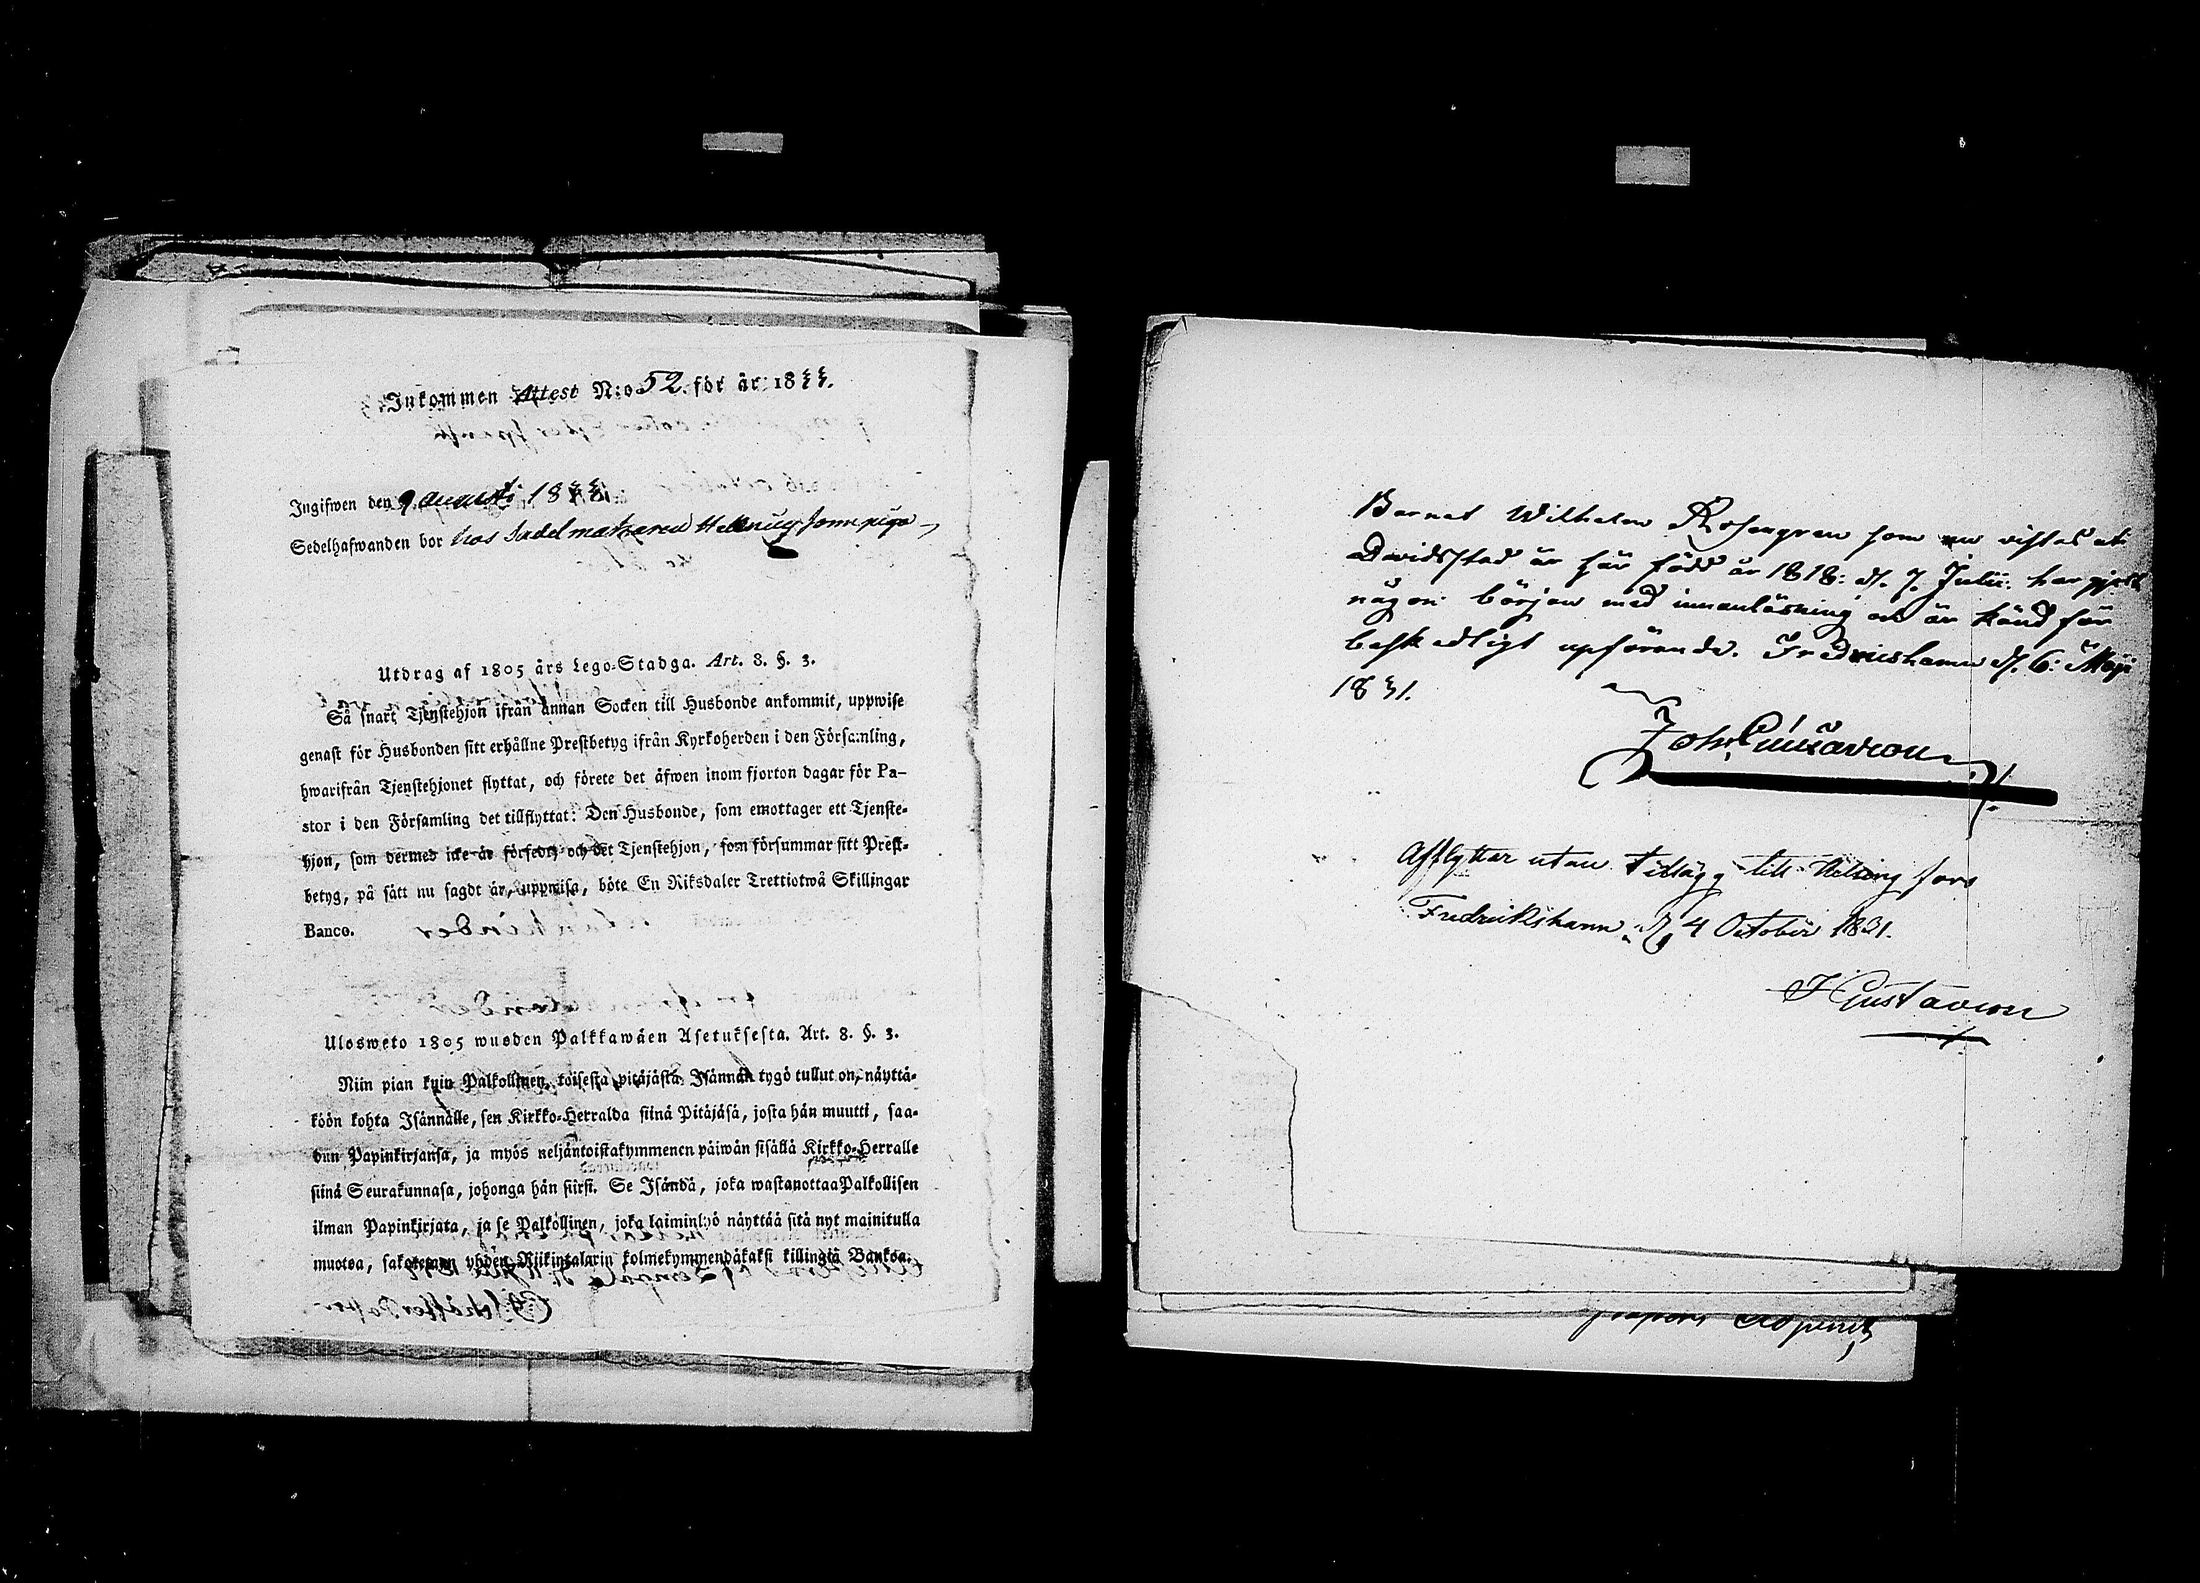 Inkommen Attest N:o 52. för år 1833.
Ingifwen den 9 augusti 1833
Sedelhafwanden bor hos Sadelmakaren som piga
Utdrag af 1805 års Lego-Stadga. Art. 8. §. 3.
Så snart Tjenstehjon ifrån annan Socken till Husbonde ankommit, uppwise
genast för Husbonden sitt erhållne Prestbetyg ifrån Kyrkoherden i den Församling,
hwarifrån Tjenstehjonet flyttat, och förete det äfwen inom fjorton dagar för Pa-
stor i den Församling det tillflyttat: Den Husbonde, som emottager ett Tjenste-
hjon, som dermed icke är försedt, och det Tjenstehjon, som försummar sitt Prest-
betyg, på sått nu sagdt är, uppwisa, böte En Riksdaler Trettiotwå Skillingar
Banco.
Ulosweto 1805 wuoden Palkkawäen Asetuksesta. Art. 8. §. 3.
Niin pian kuin Palkollinen, toisesta pitäjästä Isännän tygö tullut on, näyttä-
köön kohta Isännälle, sen Kirkko-Herralda siinä Pitäjäsä, josta hän muutti, saa-
dun Papinkirjansa, ja myös neljäntoistakymmenen päiwän sisällä Kirkko-Herralle
siinä Seurakunnasa, johonga hän siirsi. Se Isändä, joka wastanottaa Palkollisen
ilman Papinkirjata, ja se Palkollinen, joka laiminlyö näyttää sitä nyt mainitulla
muotoa, sakotetaan yhden Riikintalarin kolmekymmendäkaksi killingiä Bankoa.
Barnet Wilhelm Rosengren som nu vistas uti
Davidstad är här född år 1818: d. 7. Julii: har gjort
någon början med innanläsning och är känd för
beskedligt upförande. Fredricshamn d. 6: Maji
1831.
Joh. Gustavson
Afflyttar utan tillägg till Helsingfors
Fredrikshamn d 4 October 1831.
J Gustavson